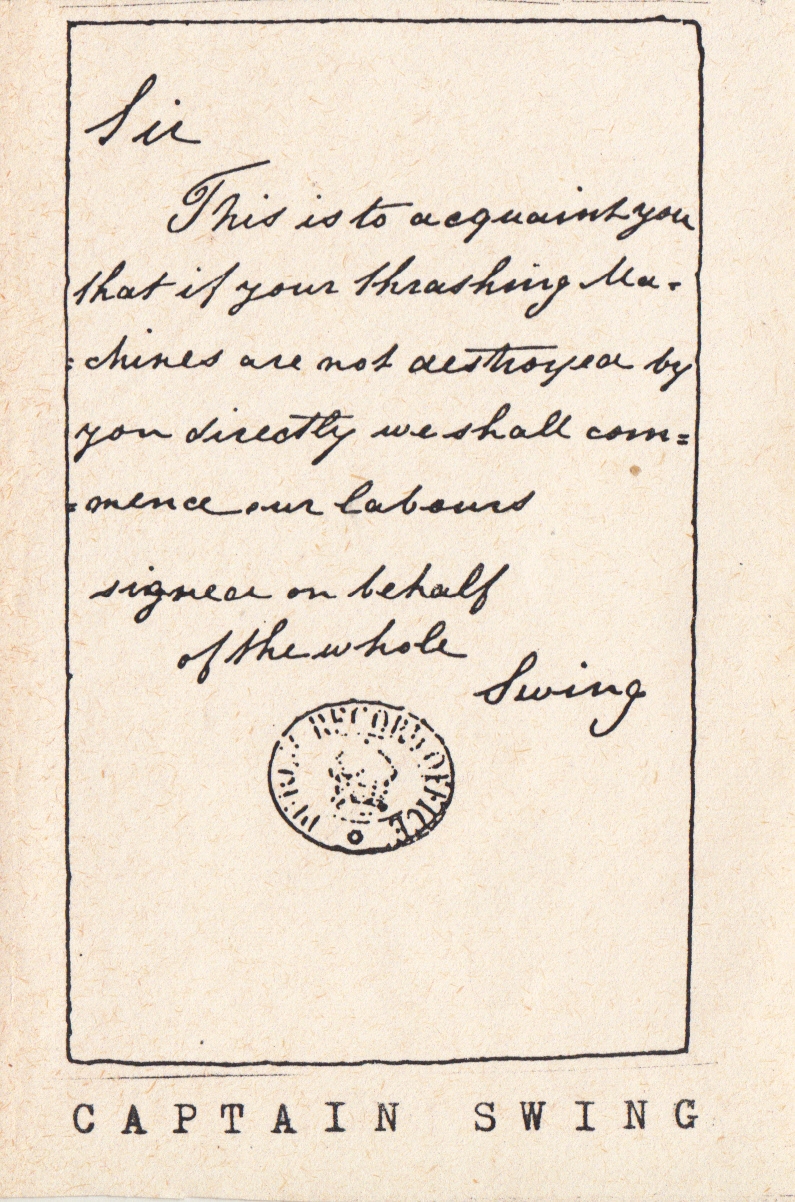 Sir
This is to acquaint you
that if your thrashing Ma-
=chines are not destroyed by
you directly we shall com=
=mence our labours
signed on behalf
of the whole
Swing
RECORD OFFICE
CAPTAIN SWING